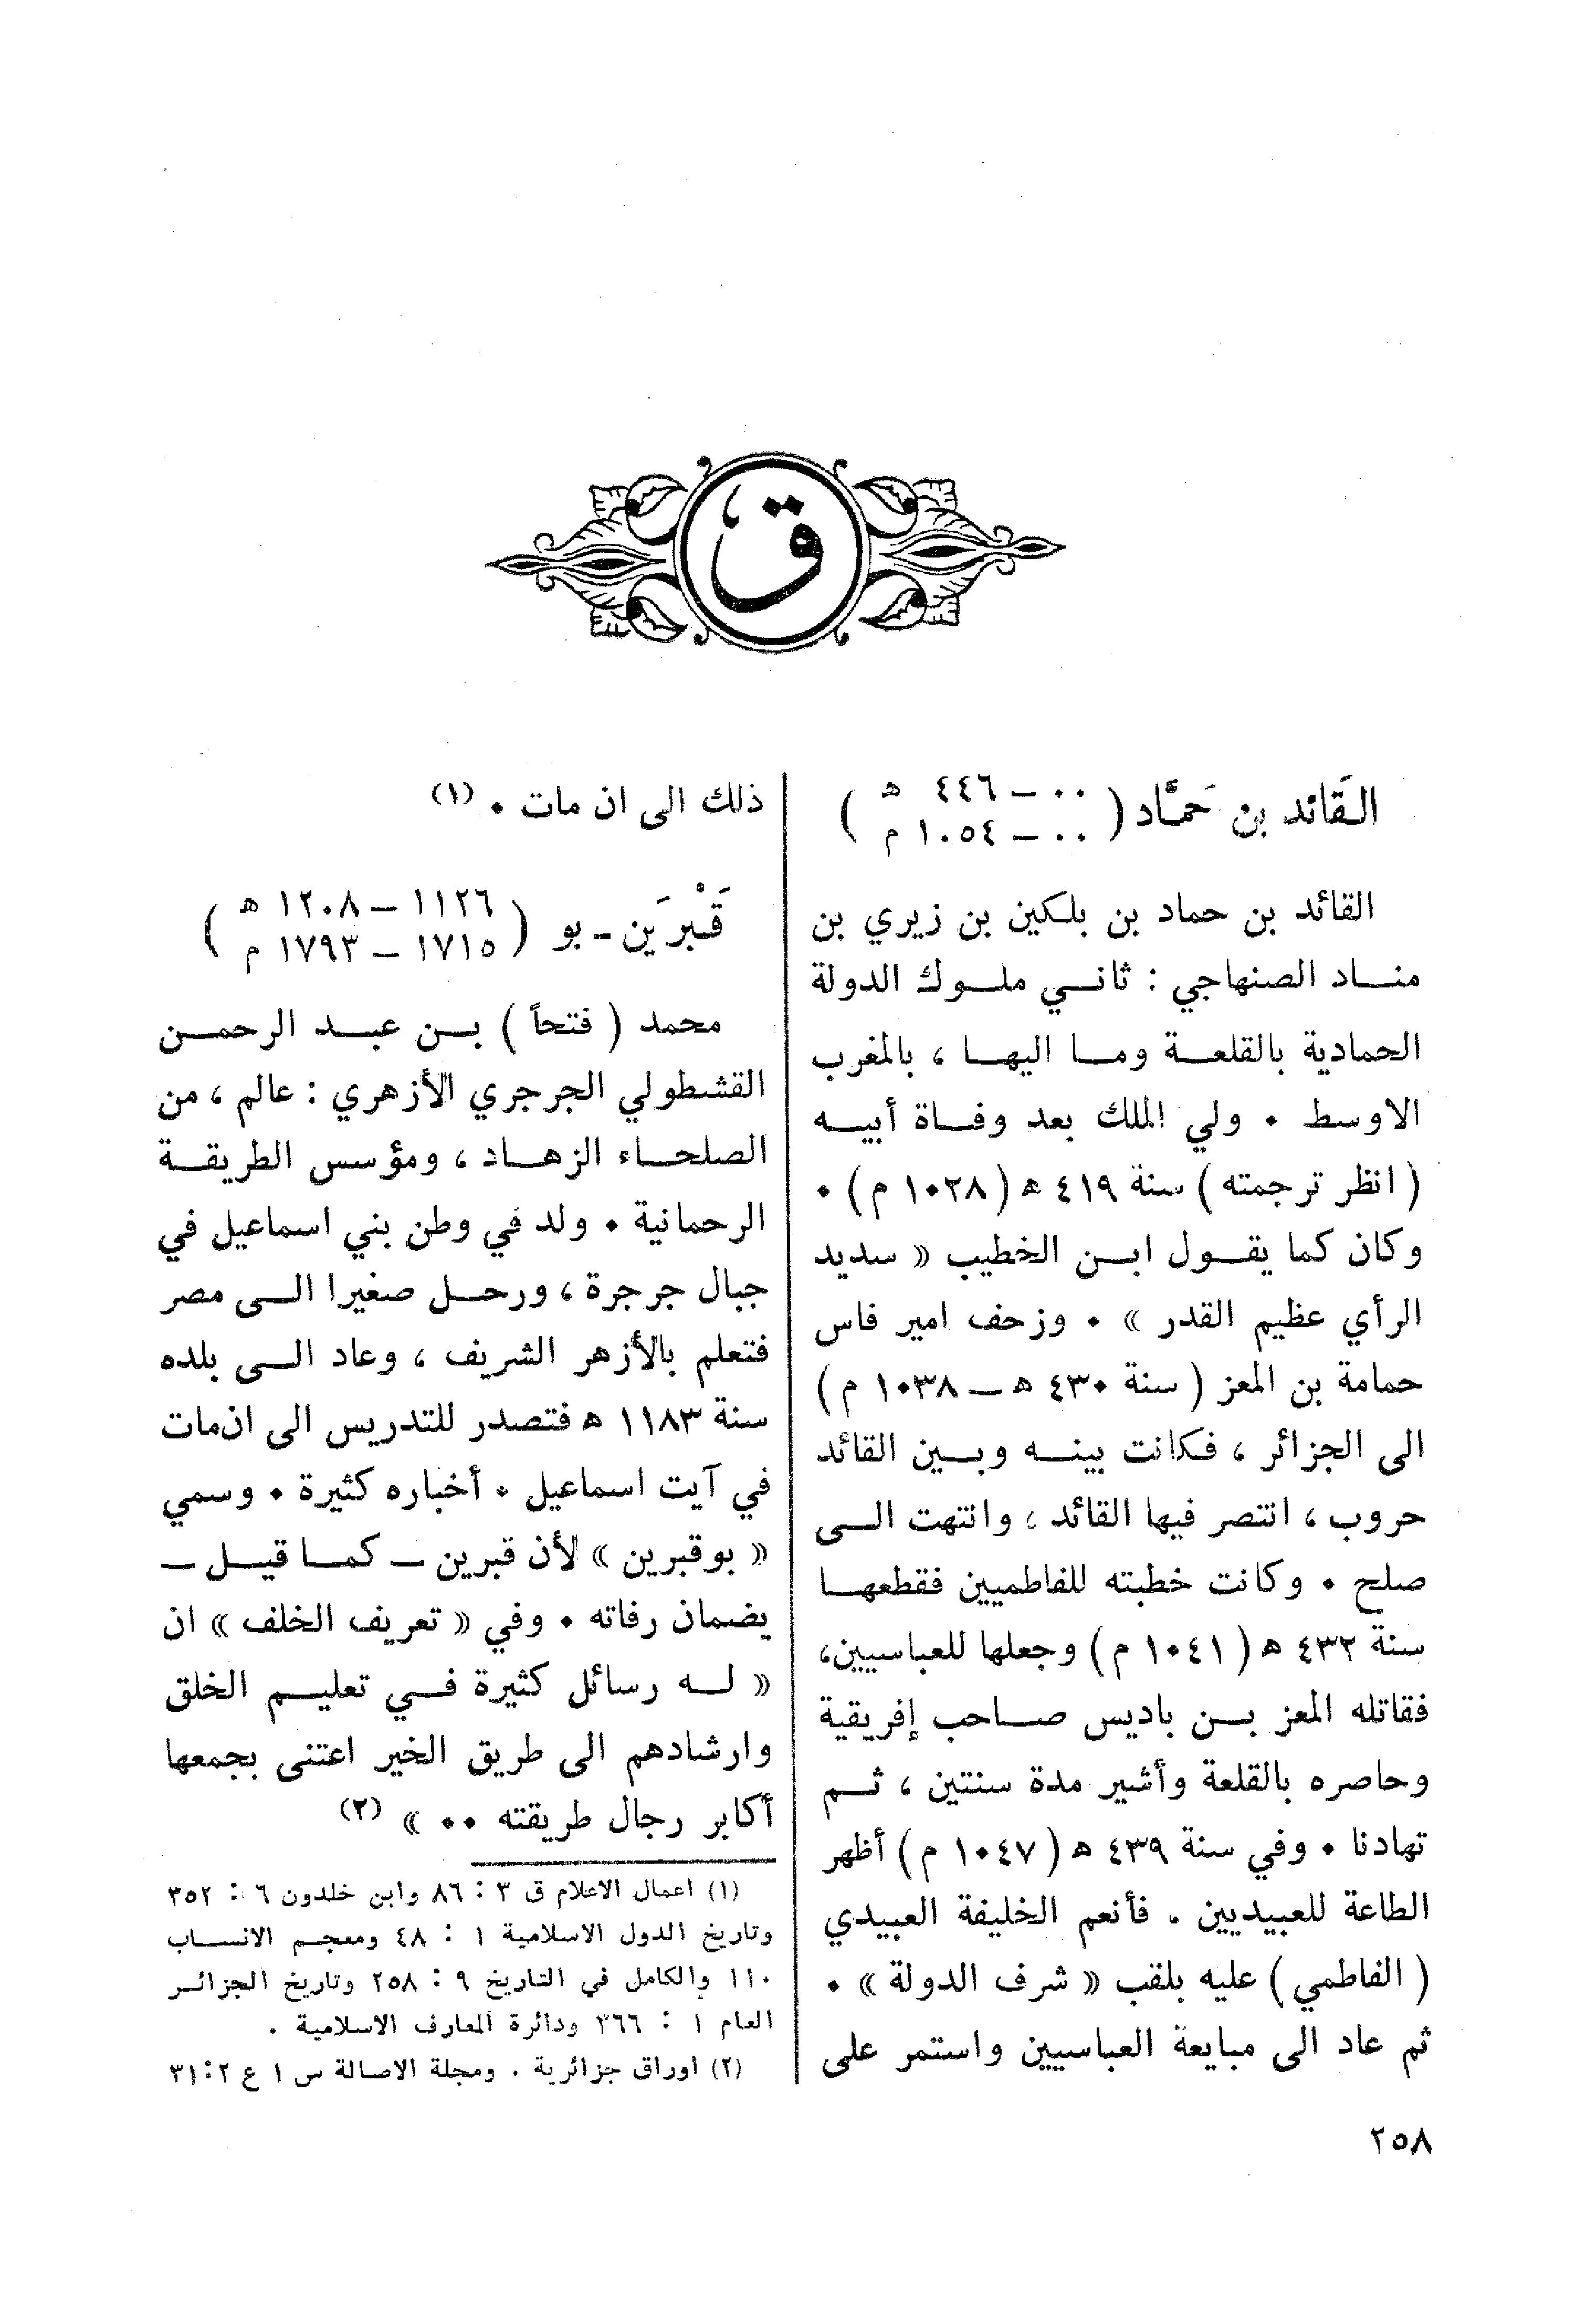 ق
القَائد بن حَمَّاد ( ٠٠ – ٤٤٦ هـ
٠٠ – ١٠٥٤ م )
القائد بن حماد بن بلكين بن زيري بن
منـاد الصنهاجي : ثانـي ملـوك الدولة
الحمادية بالقلعـة ومـا اليهـا ، بالمغرب
الاوسط . ولي الملك بعد وفـاة أبيـه
( انظر ترجمته ) سنة ٤١٩ هـ ( ١٠٢٨ م ) .
وكان كما يقـول ابـن الخطيب « سديد
الرأي عظيم القدر » . وزحف امير فاس
حمامة بن المعز ( سنة ٤٣٠ هـ – ١٠٣٨ م )
الى الجزائر ، فكانت بينـه وبـين القائد
حروب ، انتصر فيها القائد ، وانتهت الـى
صلح . وكانت خطبته للفاطميين فقطعهـا
سنة ٤٣٢ هـ ( ١٠٤١ م ) وجعلها للعباسيين،
فقاتله المعز بـن باديس صـاحب إفريقية
وحاصره بالقلعة وأشير مدة سنتين ، ثـم
تهادنا . وفي سنة ٤٣٩ هـ ( ١٠٤٧ م ) أظهر
الطاعة للعبيديين . فأنعم الخليفة العبيدي
( الفاطمي ) عليه بلقب « شرف الدولة » .
ثم عاد الى مبايعة العباسيين واستمر على
ذلك الى ان مات . (١)
قَبْرَين - بو ( ١١٢٦ – ١٢٠٨ هـ
١٧١٥ – ١٧٩٣ م )
محمد ( فتحاً ) بـن عبـد الرحمـن
القشطولي الجرجري الأزهري : عالم ، من
الصلحـاء الزهـاد ، ومؤسس الطريقـة
الرحمانية . ولد في وطن بني اسماعيل في
جبال جرجرة ، ورحـل صغيرا الـى مصر
فتعلم بالأزهر الشريف ، وعاد الـى بلده
سنة ١١٨٣ هـ فتصدر للتدريس الى ان مات
في آيت اسماعيل . أخباره كثيرة . وسمي
« بوقبرين » لأن قبرين – كمـا قيـل –
يضمان رفاته . وفي « تعريف الخلف » ان
« لـه رسائل كثيرة فـي تعليـم الخلق
وارشادهم الى طريق الخير اعتنى بجمعها
أكابر رجال طريقته .. » (٢)
(١) اعمال الاعلام ق ٣ : ٨٦ وابن خلدون ٦ : ٣٥٢
وتاريخ الدول الاسلامية ١ : ٤٨ ومعجـم الانسـاب
١١٠ والكامل في التاريخ ٩ : ٢٥٨ وتاريخ الجزائـر
العام ١ : ٣٦٦ ودائرة المعارف الاسلامية .
(٢) اوراق جزائرية . ومجلة الاصالة س ١ ع ٢ : ٣١
٢٥٨